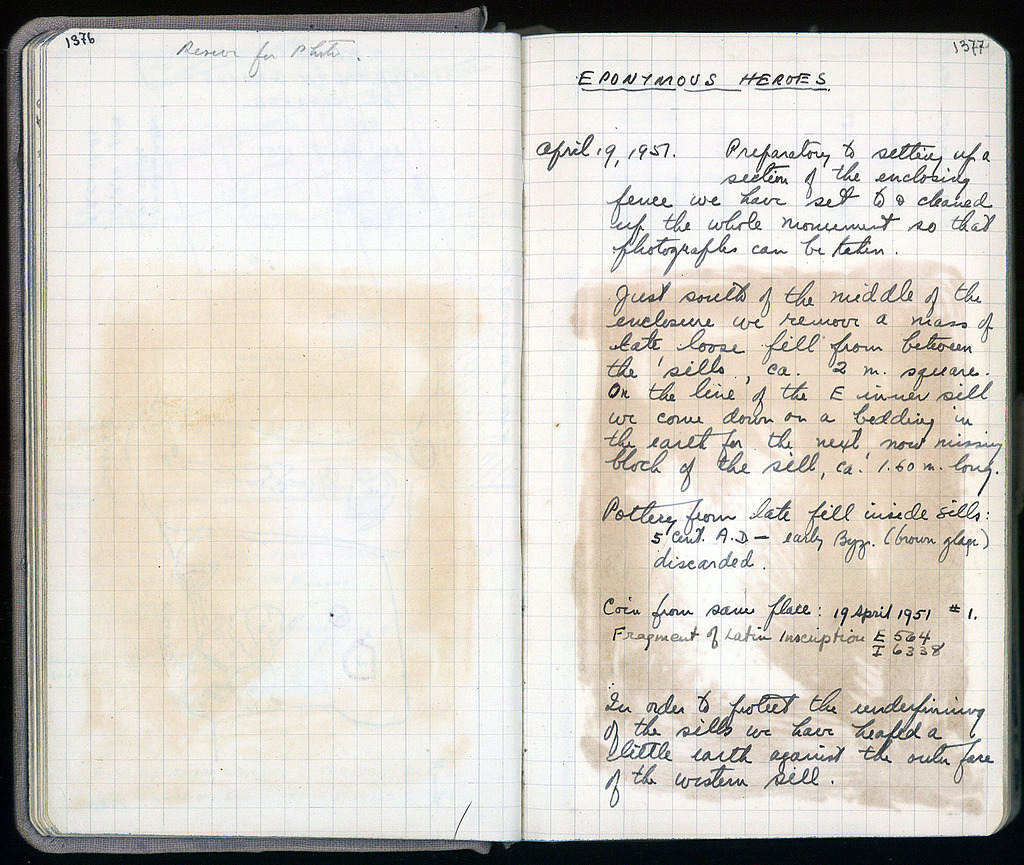 1376
Reserve for Photo.
1377
EPONYMOUS HEROES
April 19, 1951. Preparatory to setting up a
section of the enclosing
fence we have set to & cleaned
up the whole monument so that
photographs can be taken.
Just south of the middle of the
enclosure we remove a mass of
late loose fill from between
the 'sills', ca. 2 m. square.
On the line of the E inner sill
we come down on a bedding in
the earth for the next, now missing
block of the sill, ca. 1.60 m. long.
Pottery from late fill inside sills:
5 cent. A.D – early Byz. (brown glaze)
discarded.
Coin from same place: 19 April 1951 #1.
Fragment of Latin Inscription E 564
I 6338
In order to protect the underpinning
of the sills we have heaped a
little earth against the outer face
of the western sill.